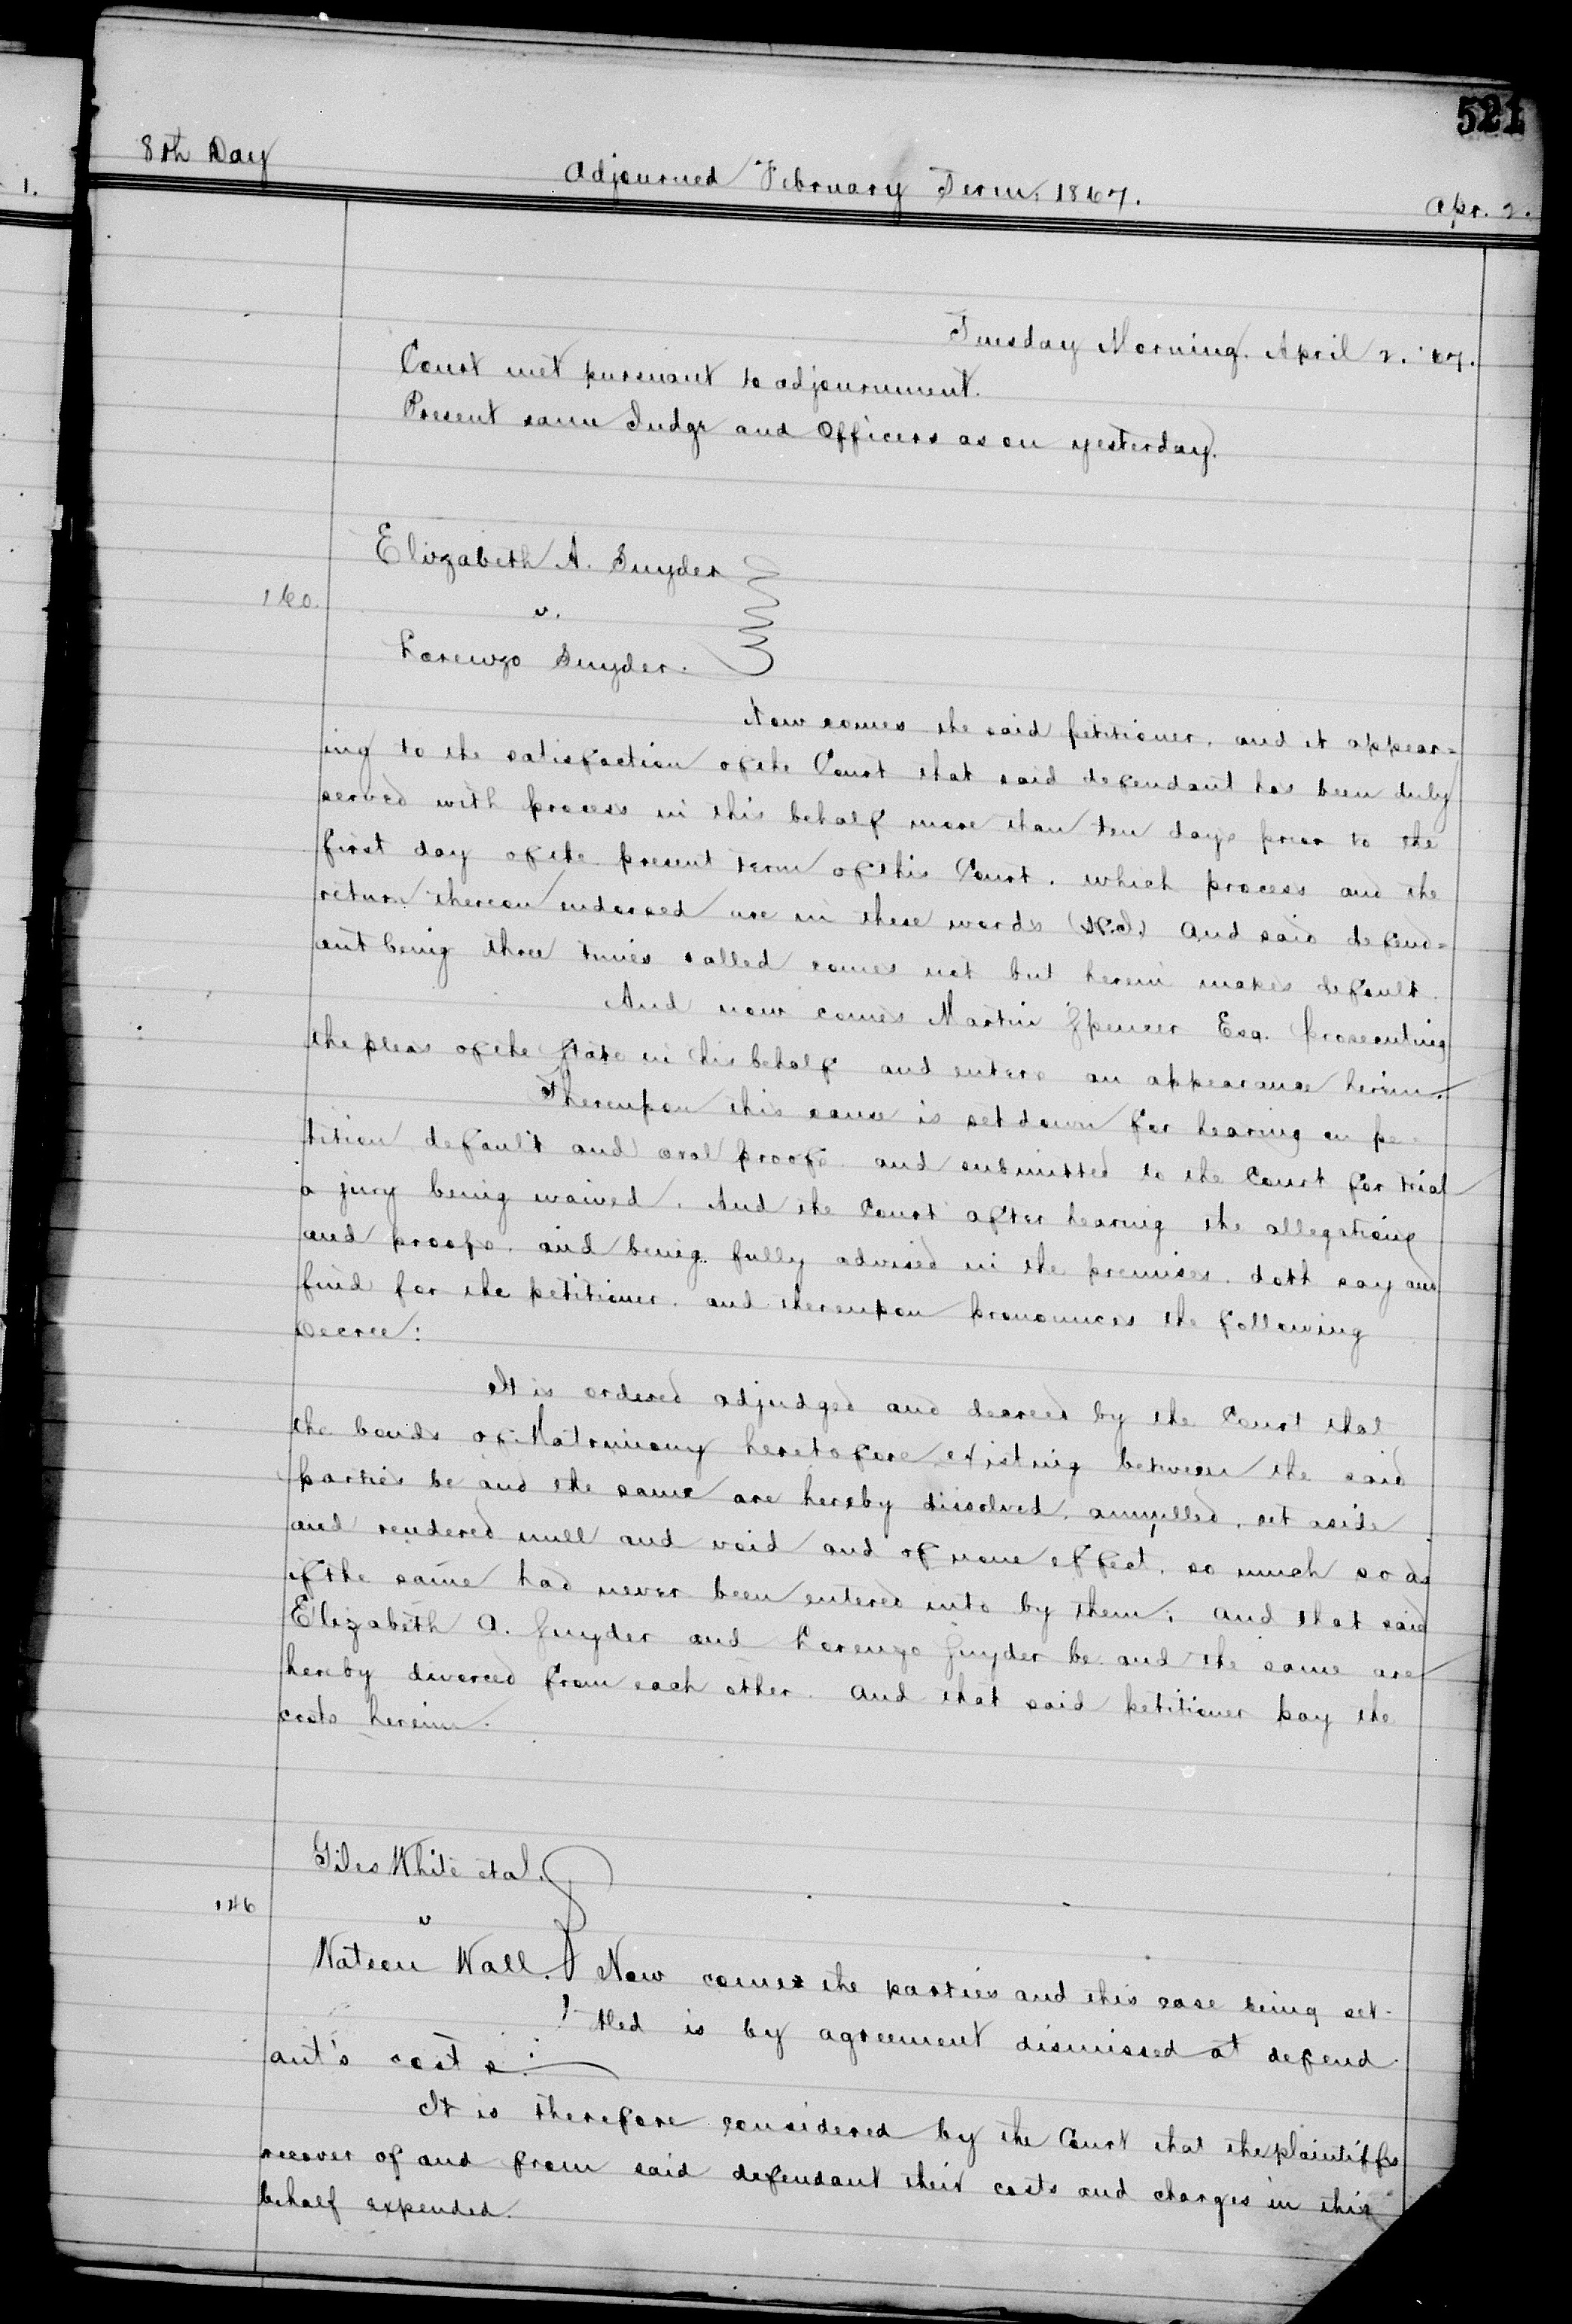 521
8th Day
Adjourned February Term, 1867.
Apr. 2.
1.
Tuesday Morning. April 2. '67.
Court met pursuant to adjournment.
Present same Judge and Officers as on yesterday.
Elizabeth A. Snyder
160.
v.
Lorenzo Snyder.
Now comes the said petitioner, and it appear=
ing to the satisfaction of the Court that said defendant has been duly
served with process in this behalf more than ten days prior to the
first day of the present term of this Court. which process and the
return thereon endorsed are in these words (H.I.) And said defend=
ant being three times called comes not but herein makes default.
And now comes Martin Spencer Esq. Prosecuting
the pleas of the State in this behalf and enters an appearance herein.
Thereupon this cause is set down for hearing on pe-
tition default and oral proofs. and submitted to the Court for trial
a jury being waived. And the Court after hearing the allegations
and proofs. and being fully advised in the premises. doth say and
find for the petitioner. and thereupon pronounces the following
Decree:
It is ordered adjudged and decreed by the Court that
the bonds of Matrimony heretofore existing between the said
parties be and the same are hereby dissolved, annulled, set aside
and rendered null and void and of none effect, so much so as
if the same had never been entered into by them; and that said
Elizabeth A. Snyder and Lorenzo Snyder be and the same are
hereby divorced from each other. And that said petitioner pay the
costs herein.
Giles White et al.
146
v
Watson Wall. Now comes the parties and this case being set-
tled is by agreement dismissed at defend-
ant's costs:
It is therefore considered by the Court that the plaintiffs
recover of and from said defendant their costs and charges in this
behalf expended.